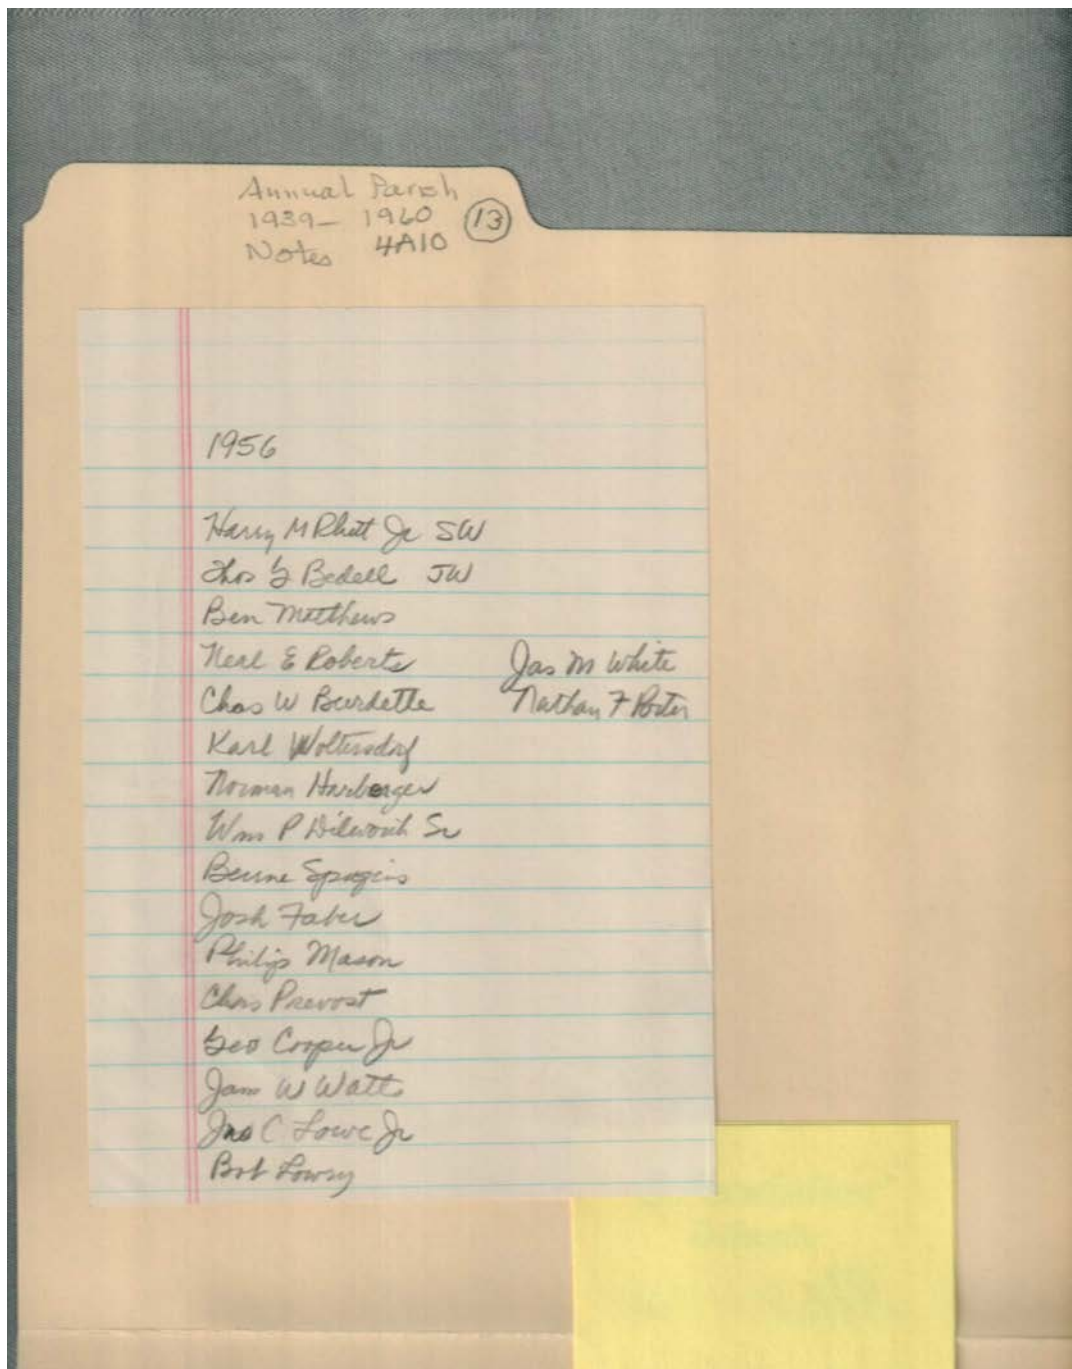 Annual Parish
1939– 1960 13
Notes 4A10
1956
Harry M Rhett Jr SW
Thos G Bedell JW
Ben Matthews
Neal E Roberts Jas M White
Chas W Burdette Nathan F Porter
Karl Woltersdorf
Norman Harberger
Wm P Dilworth Sr
Beirne Spragins
Josh Faber
Philip Mason
Chas Prevost
Geo Cooper Jr
Jam W Watts
Jno C Lowe Jr
Bob Lowry